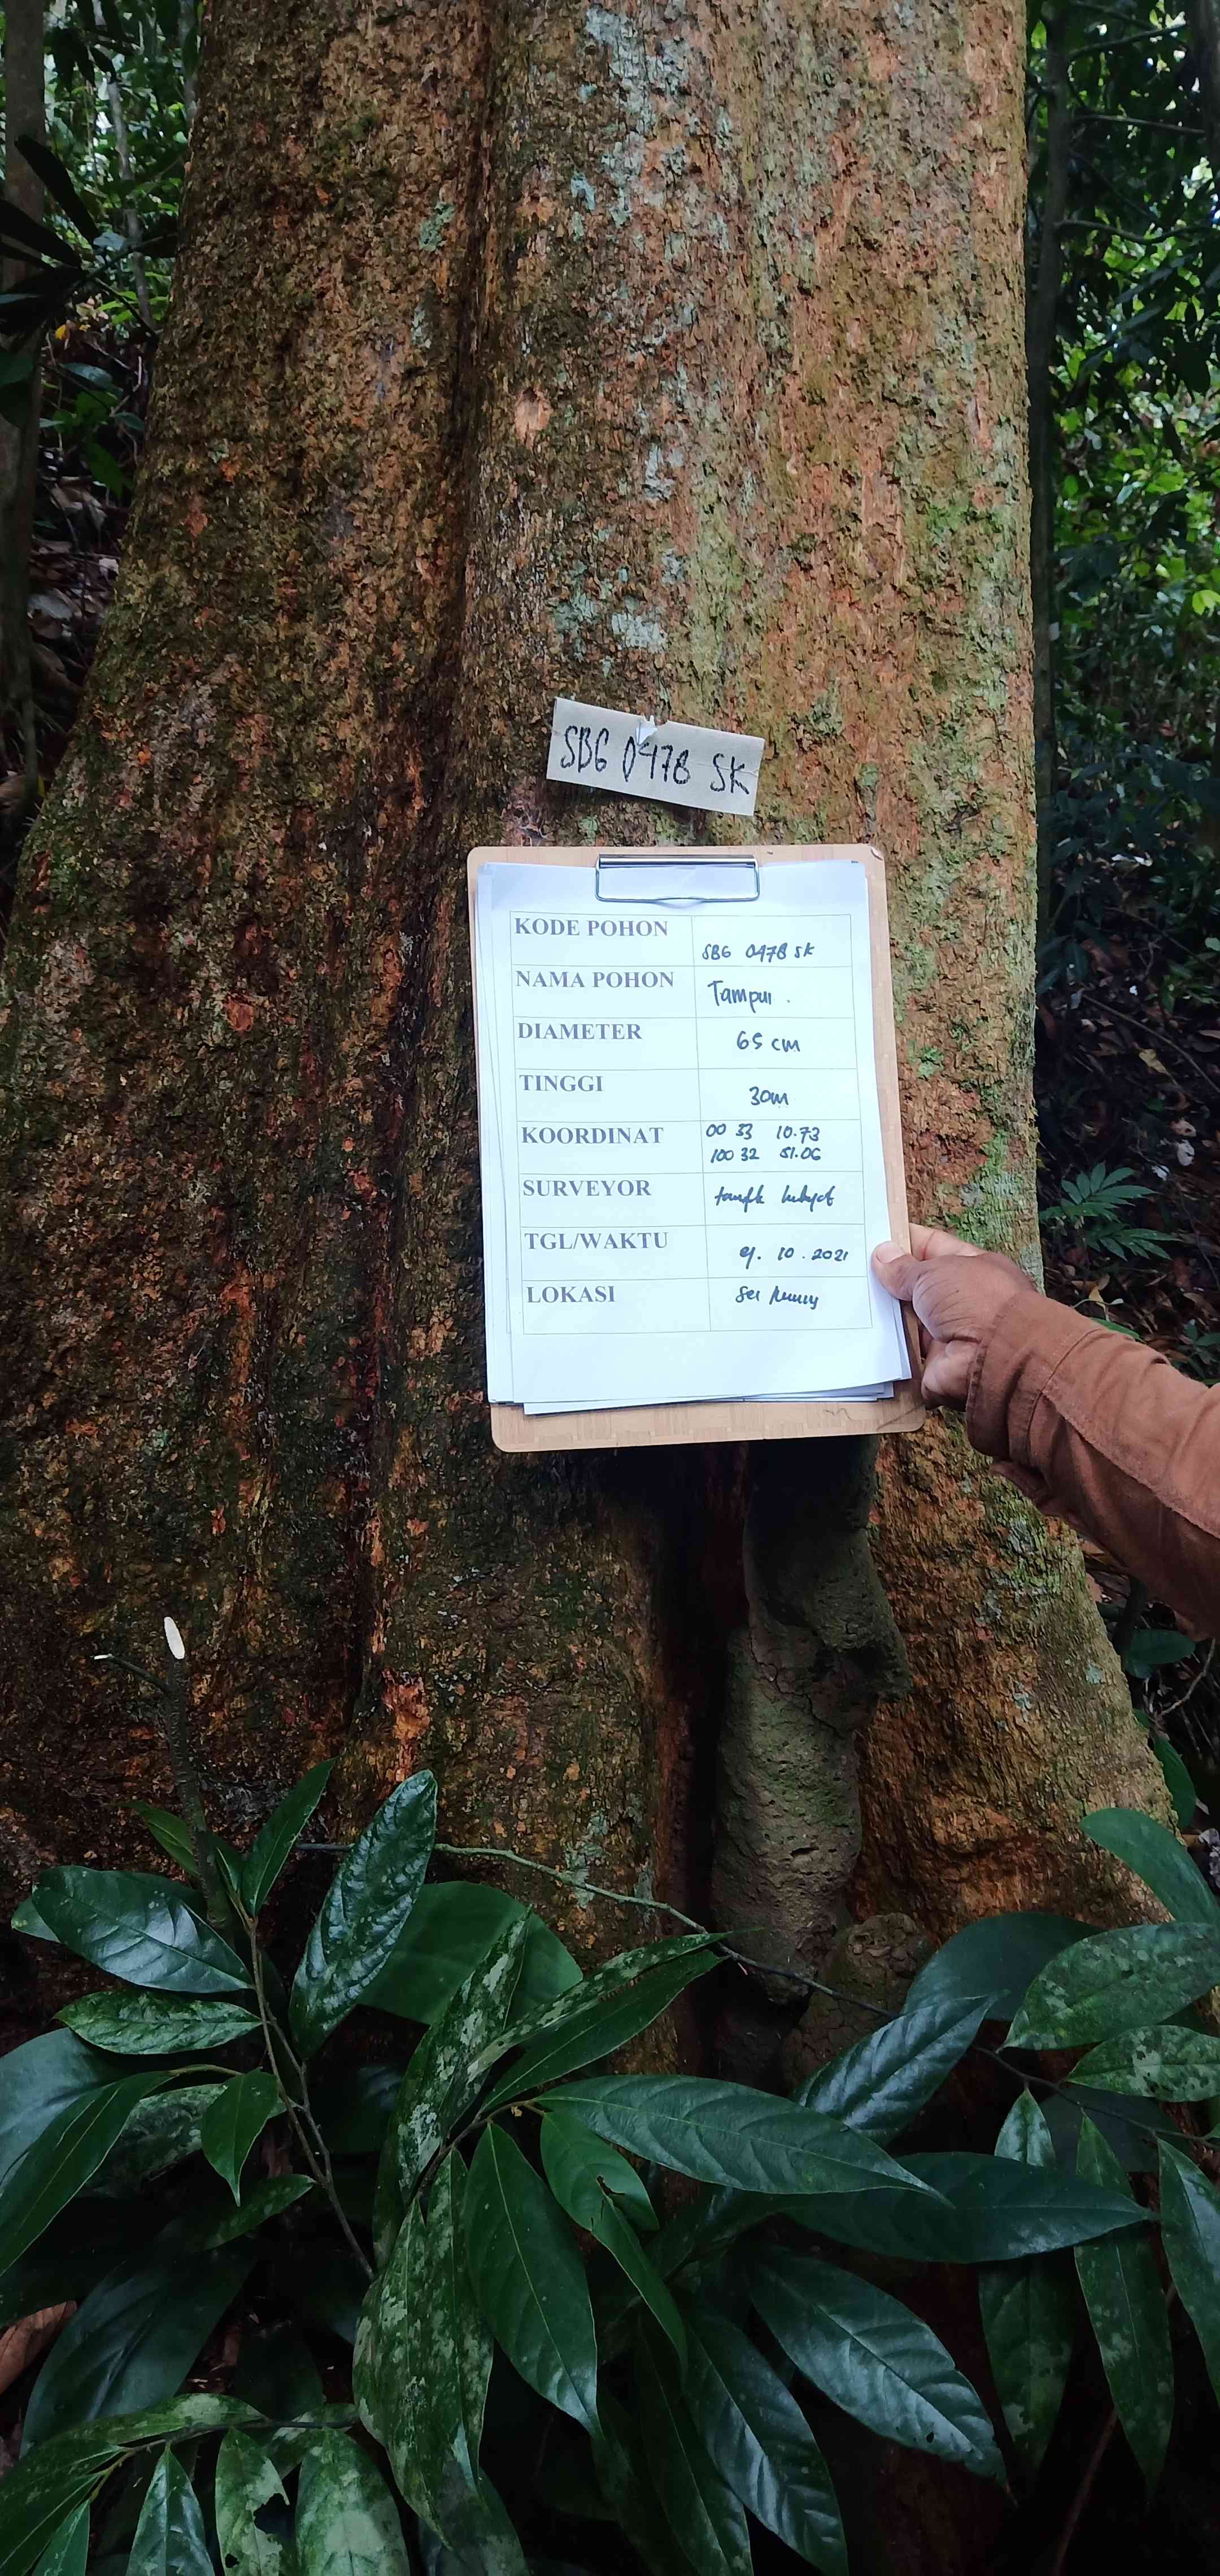 SBG 0478 SK
KODE POHON
SBG 0478 SK
NAMA POHON
Tampui .
DIAMETER
65 cm
TINGGI
30m
KOORDINAT
00 33 10.73
100 32 51.06
SURVEYOR
taufik hidayat
TGL/WAKTU
10 . 2021
LOKASI